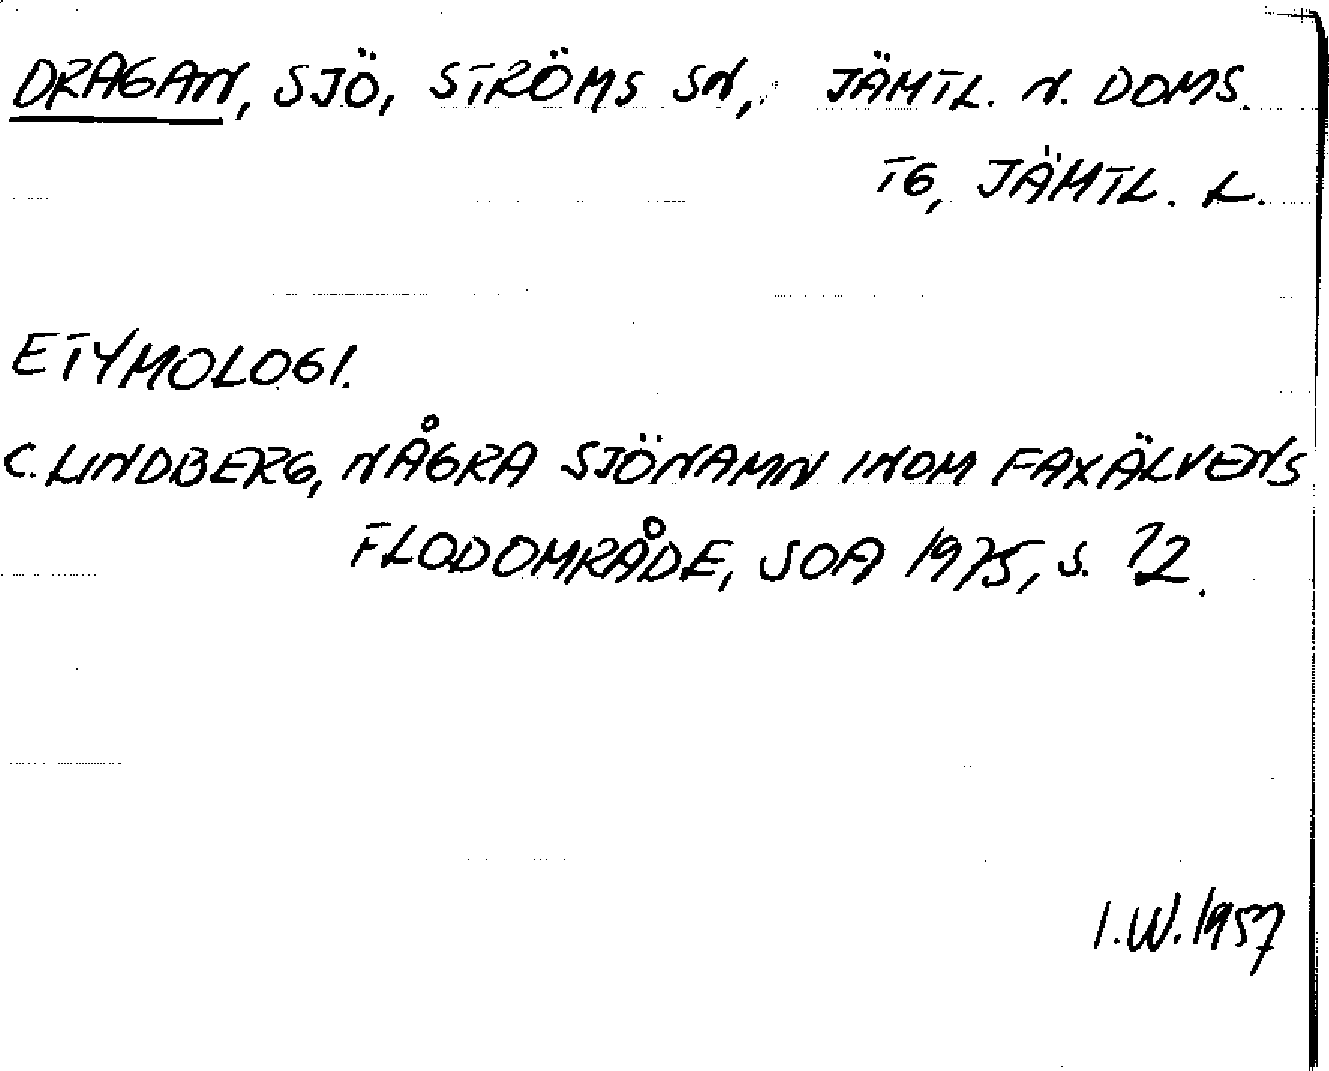 DRAGAN, SJÖ, STRÖMS SN, JÄMTL. N. DOMS.
TG, JÄMTL. L.
ETYMOLOGI.
C. LINDBERG, NÅGRA SJÖNAMN INOM FAXÄLVENS
FLODOMRÅDE, SOÅ 1975, S. 12.
I.W. 1957